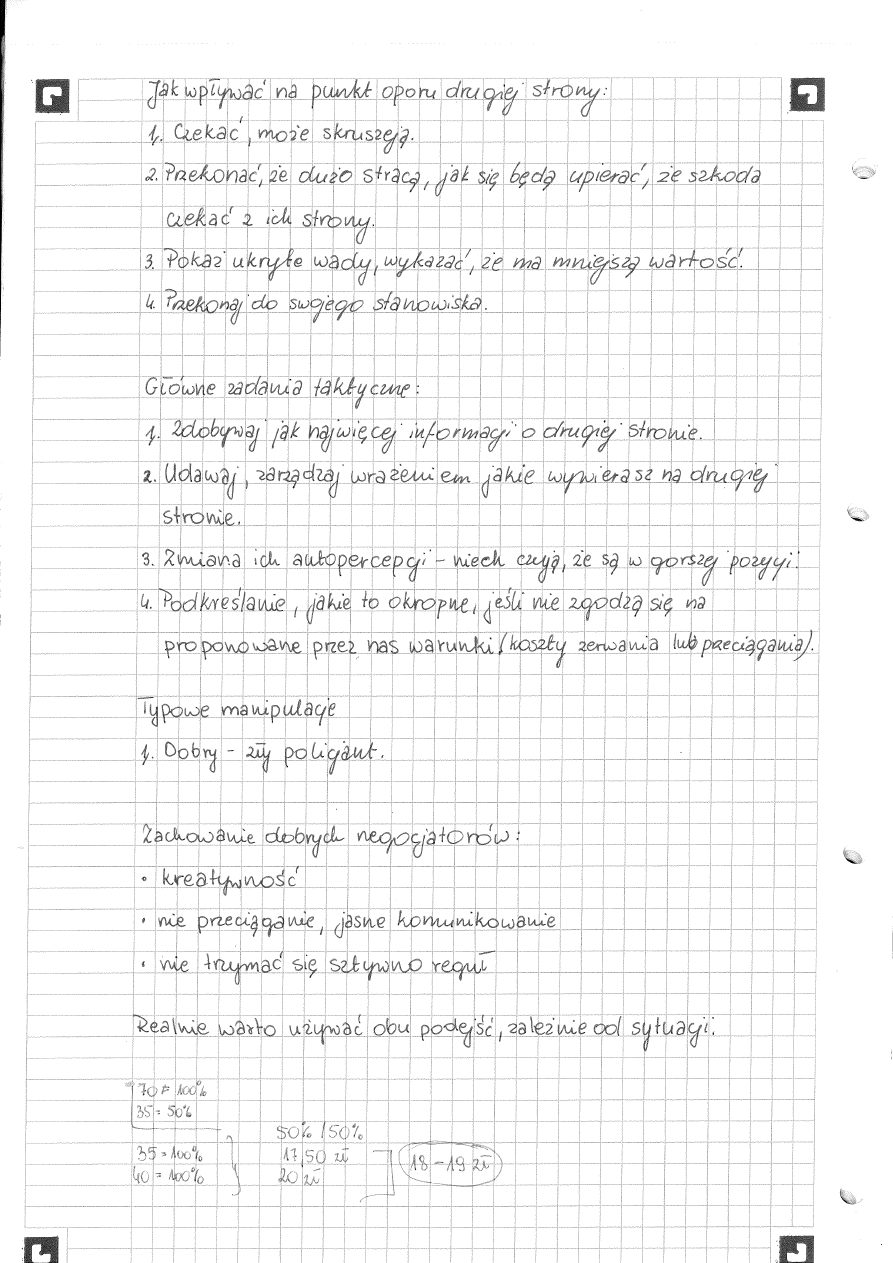 Jak wpływać na punkt oporu drugiej strony:
1. Czekać, może skruszeją.
2. Przekonać, że dużo stracą, jak się będą upierać, że szkoda
czekać z ich strony.
3. Pokaż ukryte wady, wykazać, że ma mniejszą wartość.
4. Przekonaj do swojego stanowiska.
Główne zadania taktyczne:
1. Zdobywaj jak najwięcej informacji o drugiej stronie.
2. Udawaj, zarządzaj wrażeniem jakie wywierasz na drugiej
stronie.
3. Zmiana ich autopercepcji - niech czują, że są w gorszej pozycji.
4. Podkreślanie, jakie to okropne, jeśli nie zgodzą się na
proponowane przez nas warunki (koszty zerwania lub przeciągania).
Typowe manipulacje
1. Dobry - zły policjant.
Zachowanie dobrych negocjatorów:
• kreatywność
• nie przeciąganie, jasne komunikowanie
• nie trzymać się sztywno reguł
Realnie warto używać obu podejść, zależnie od sytuacji.
70 = 100%
35 = 50%
50% / 50%
35 = 100% 17,50 zł 18 - 19 zł
40 = 100% 20 zł